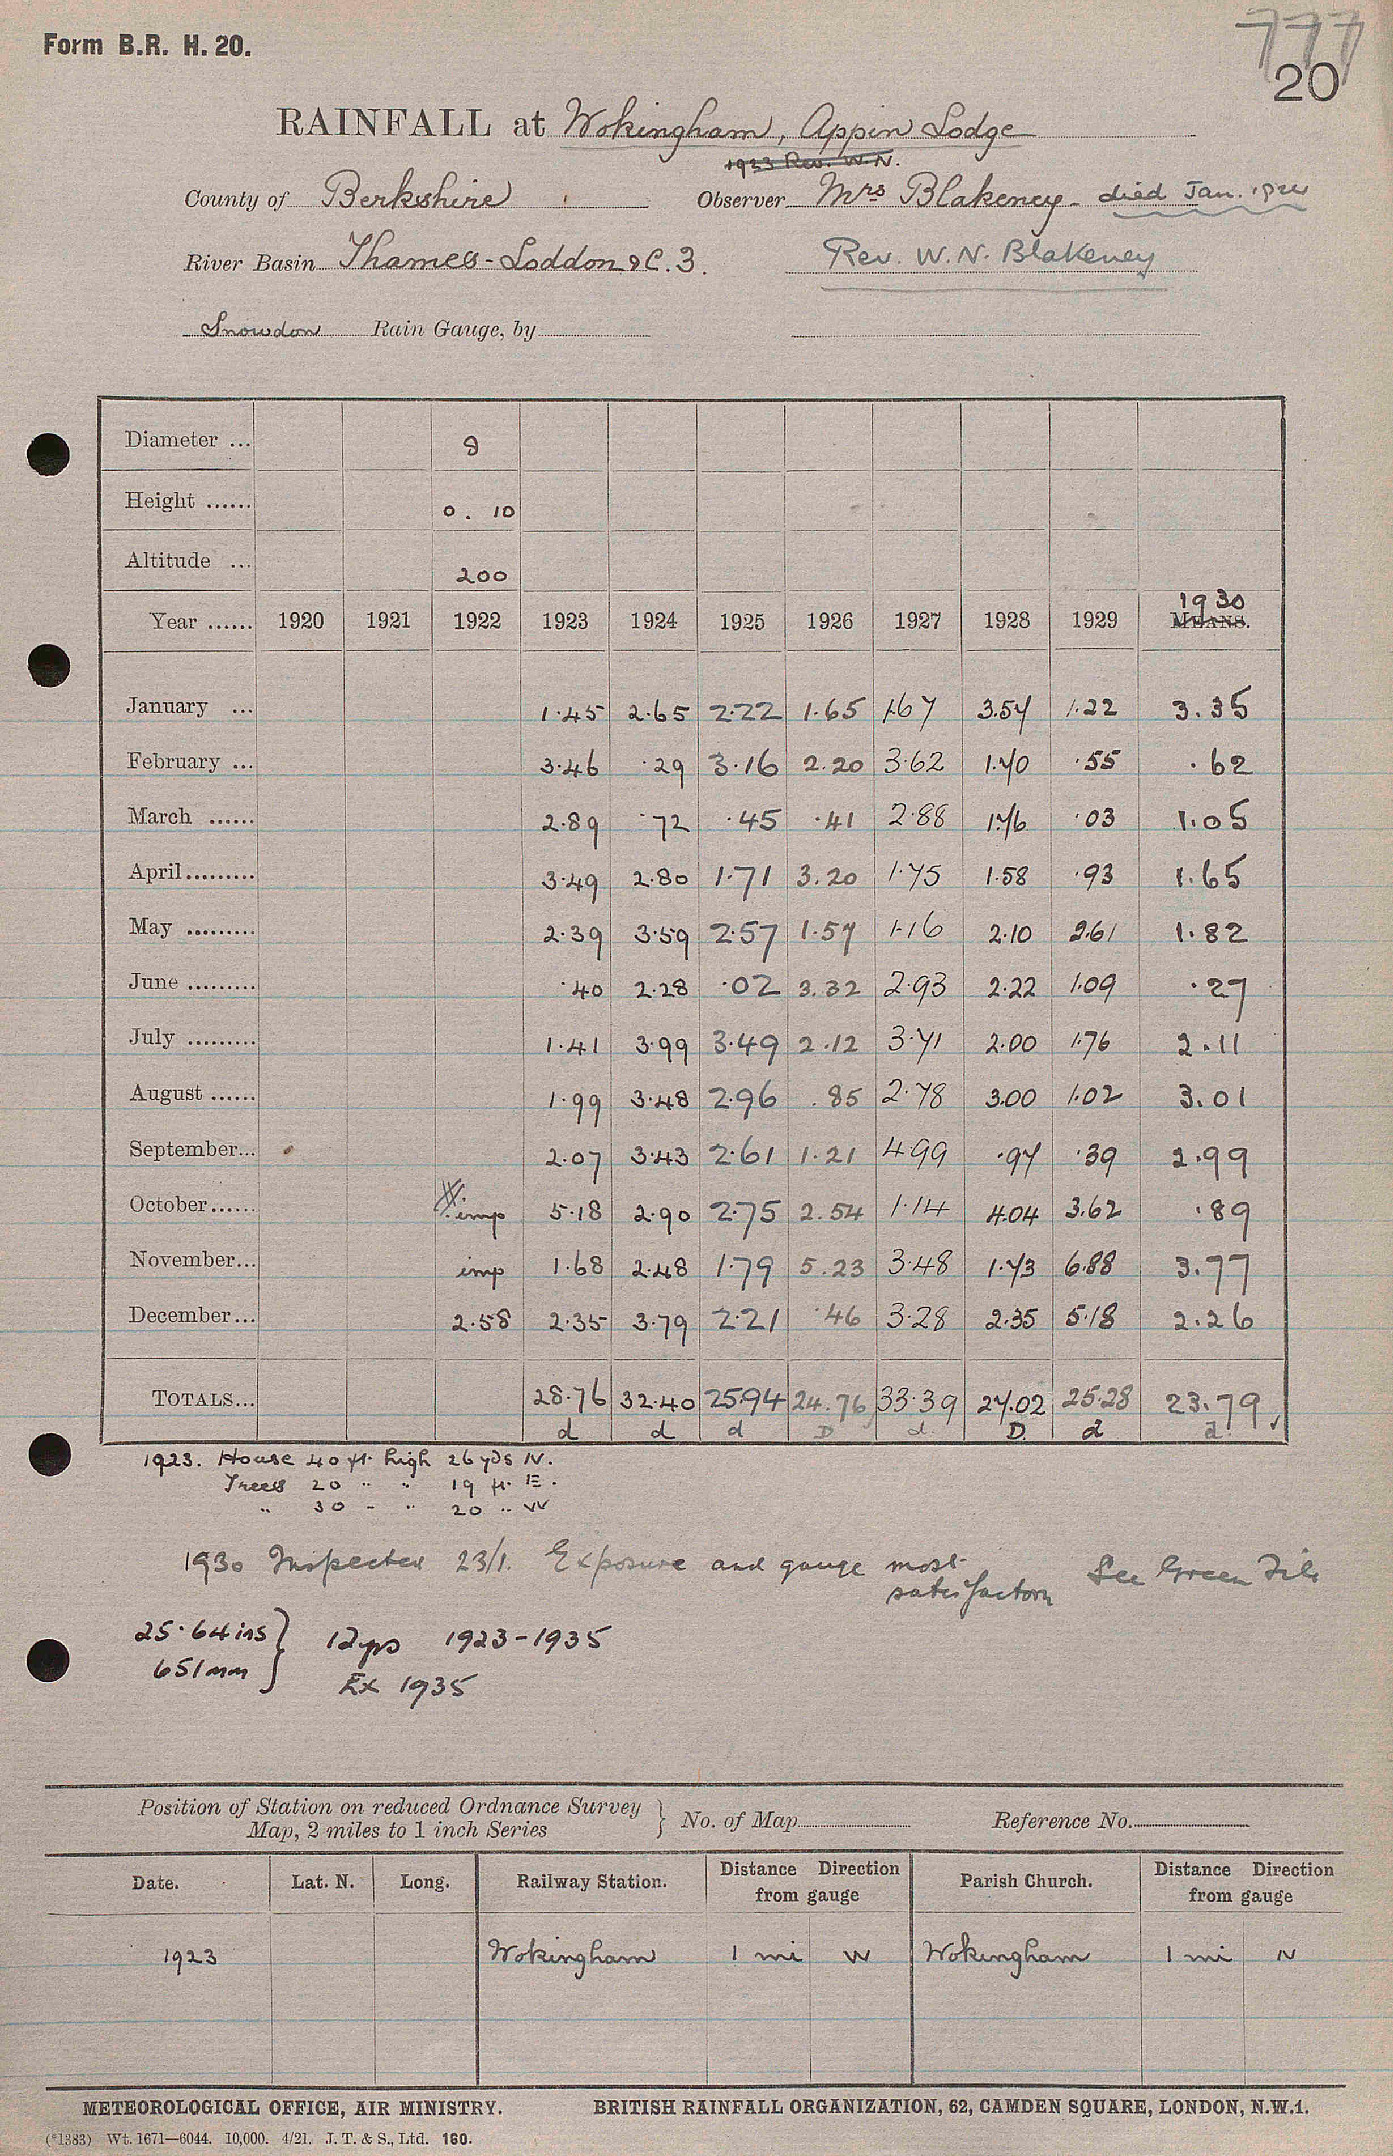 Form B.R. H. 20.
777
20
RAINFALL at Wokingham, Appin Lodge
1923 Rev. W.N.
County of Berkshire Observer Mrs Blakeney - died Jan. 1924
River Basin Thames - Loddon & C. 3. Rev. W. N. Blakeney
Snowdon Rain Gauge, by
Diameter ... 8
Height ...... 0 . 10
Altitude ... 200
Year ...... 1920 1921 1922 1923 1924 1925 1926 1927 1928 1929 MEANS. 1930
January ... 1.45 2.65 2.22 1.65 1.67 3.54 1.22 3.35
February ... 3.46 .29 3.16 2.20 3.62 1.70 .55 .62
March ...... 2.89 .72 .45 .41 2.88 1.76 .03 1.05
April ......... 3.49 2.80 1.71 3.20 1.75 1.58 .93 1.65
May ......... 2.39 3.59 2.57 1.57 1.16 2.10 2.61 1.82
June ......... .40 2.28 .02 3.32 2.93 2.22 1.09 .27
July ......... 1.41 3.99 3.49 2.12 3.71 2.00 1.76 2.11
August ...... 1.99 3.48 2.96 .85 2.78 3.00 1.02 3.01
September... 2.07 3.43 2.61 1.21 4.99 .97 .39 2.99
October...... imp 5.18 2.90 2.75 2.54 1.14 4.04 3.62 .89
November... imp 1.68 2.48 1.79 5.23 3.48 1.73 6.88 3.77
December... 2.58 2.35 3.79 2.21 .46 3.28 2.35 5.18 2.26
TOTALS... 28.76 32.40 25.94 24.76 33.39 27.02 25.28 23.79
d d d D d D. d d
1923. House 40 ft. high 26 yds N.
Trees 20 " " 19 ft. E.
" 30 - " 20 " W
1930 Inspected 23/1. Exposure and gauge most satisfactory See Green File
25.64 ins } 12 yrs 1923-1935
651 mm } Ex 1935
Position of Station on reduced Ordnance Survey Map, 2 miles to 1 inch Series } No. of Map Reference No.
Date. Lat. N. Long. Railway Station. Distance Direction from gauge Parish Church. Distance Direction from gauge
1923 Wokingham 1 mi W Wokingham 1 mi N
METEOROLOGICAL OFFICE, AIR MINISTRY. BRITISH RAINFALL ORGANIZATION, 62, CAMDEN SQUARE, LONDON, N.W.1.
(*1383) Wt. 1671—6044. 10,000. 4/21. J. T. & S., Ltd. 160.